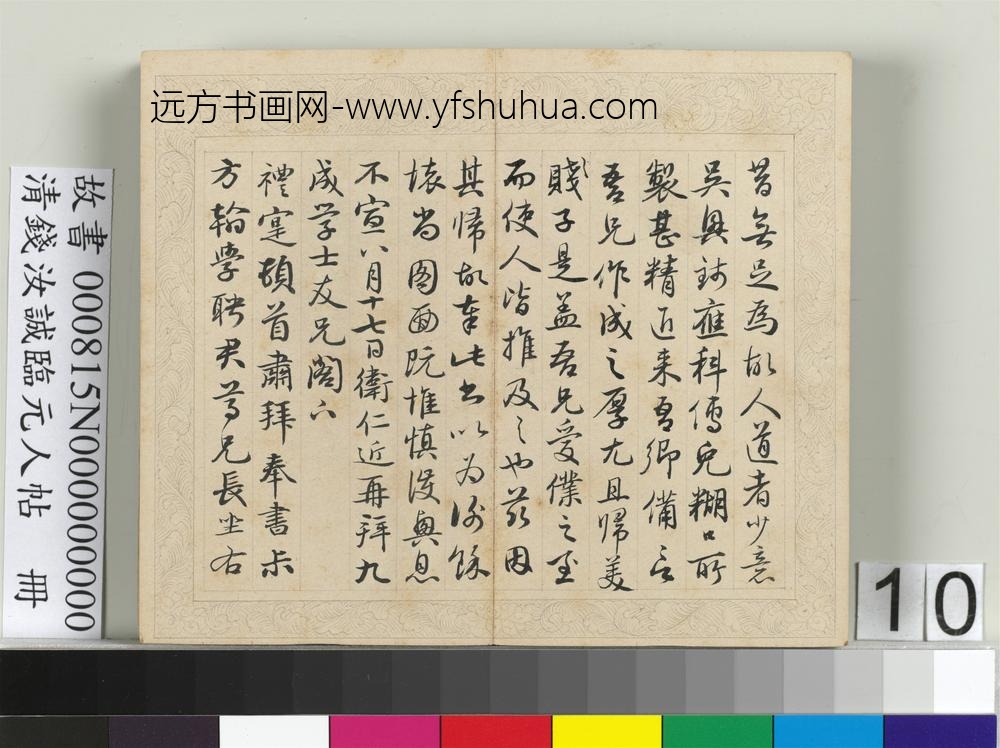 远方书画网-www.yfshuhua.com
昔無足為故人道者少意
吳興錢應科傳兒糊口所
製甚精近来吾卿備言
吾兄作成之厚尤且歸美
賤子是盖吾兄愛僕之至
而使人皆推及之也茲因
其歸故奉此出以为謝餘
懐尚图面既惟慎護興息
不宣八月十七日衛仁近再拜九
成学士友兄閣下
禮寔頓首肅拜奉書示
方翰學聘君尊兄長坐右
故書 000815N000000000
清錢汝誠臨元人帖 冊
10